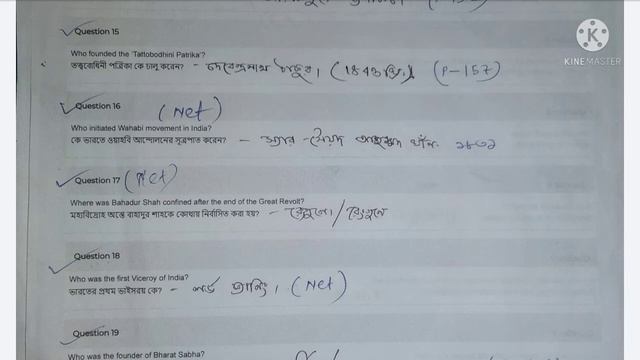 Question 15
KINEMASTER
Who founded the 'Tattobodhini Patrika'?
তত্ত্ববোধিনী পত্রিকা কে চালু করেন? – দেবেন্দ্রনাথ ঠাকুর। (1843 খ্রি.) (P-157)
Question 16 (Net)
Who initiated Wahabi movement in India?
কে ভারতে ওয়াহাবি আন্দোলনের সূত্রপাত করেন? – স্যার সৈয়দ আহম্মদ খাঁন
Question 17 (Net)
Where was Bahadur Shah confined after the end of the Great Revolt?
মহাবিদ্রোহ অন্তে বাহাদুর শাহকে কোথায় নির্বাসিত করা হয়? –
Question 18
Who was the first Viceroy of India?
ভারতের প্রথম ভাইসরয় কে? – লর্ড ক্যানিং। (Net)
Question 19
Who was the founder of Bharat Sabha?